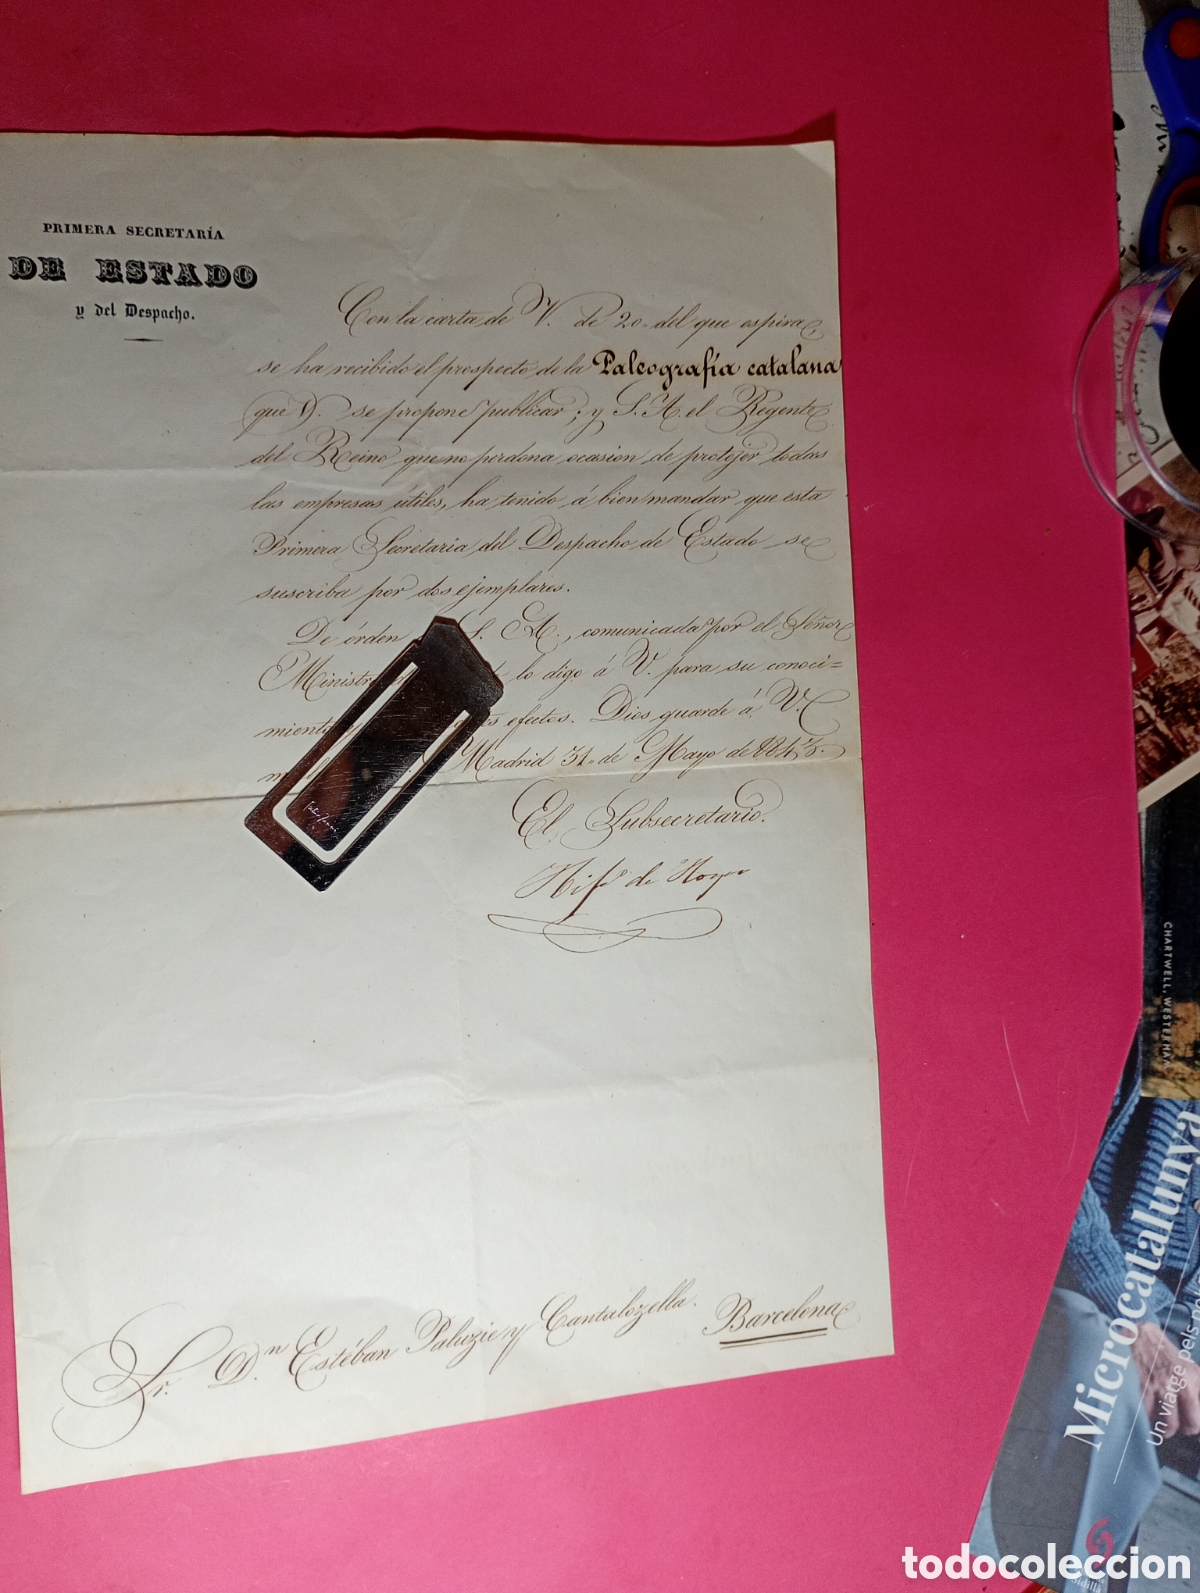 PRIMERA SECRETARÍA
DE ESTADO
y del Despacho.
Con la carta de V. de 20 del que espira
se ha recibido el prospecto de la Paleografía catalana
que V. se propone publicar; y S. A. el Regente
del Reino que no perdona ocasion de protejer todas
las empresas útiles, ha tenido á bien mandar que esta
Primera Secretaria del Despacho de Estado se
suscriba por dos ejemplares.
De órden S. A., comunicada por el Señor
Ministro lo digo á V. para su conoci=
efectos. Dios guarde á V.
Madrid 31 de Mayo de 1843.
El Subsecretario.
de Hoyo
Sr. Dn. Estéban Paluzie y Cantalozella. Barcelona
CHARTWELL, WESTERHAM
Microcatalunya
Un viatge pels
todocoleccion